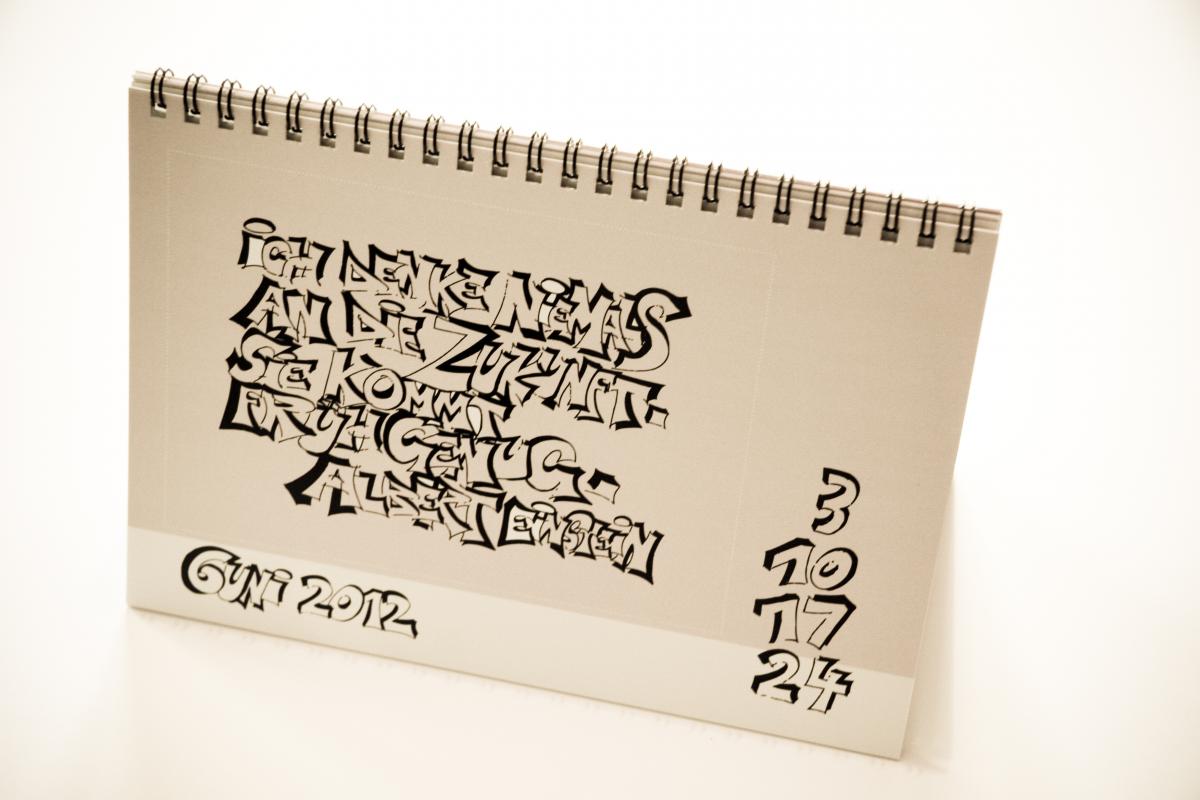 iCH DENKE NiEMALS
AN DiE ZUKUNFT.
SiE KOMMT
FRÜH GENUG.
ALBERT EiNSTEiN
JUNi 2012
3
10
17
24